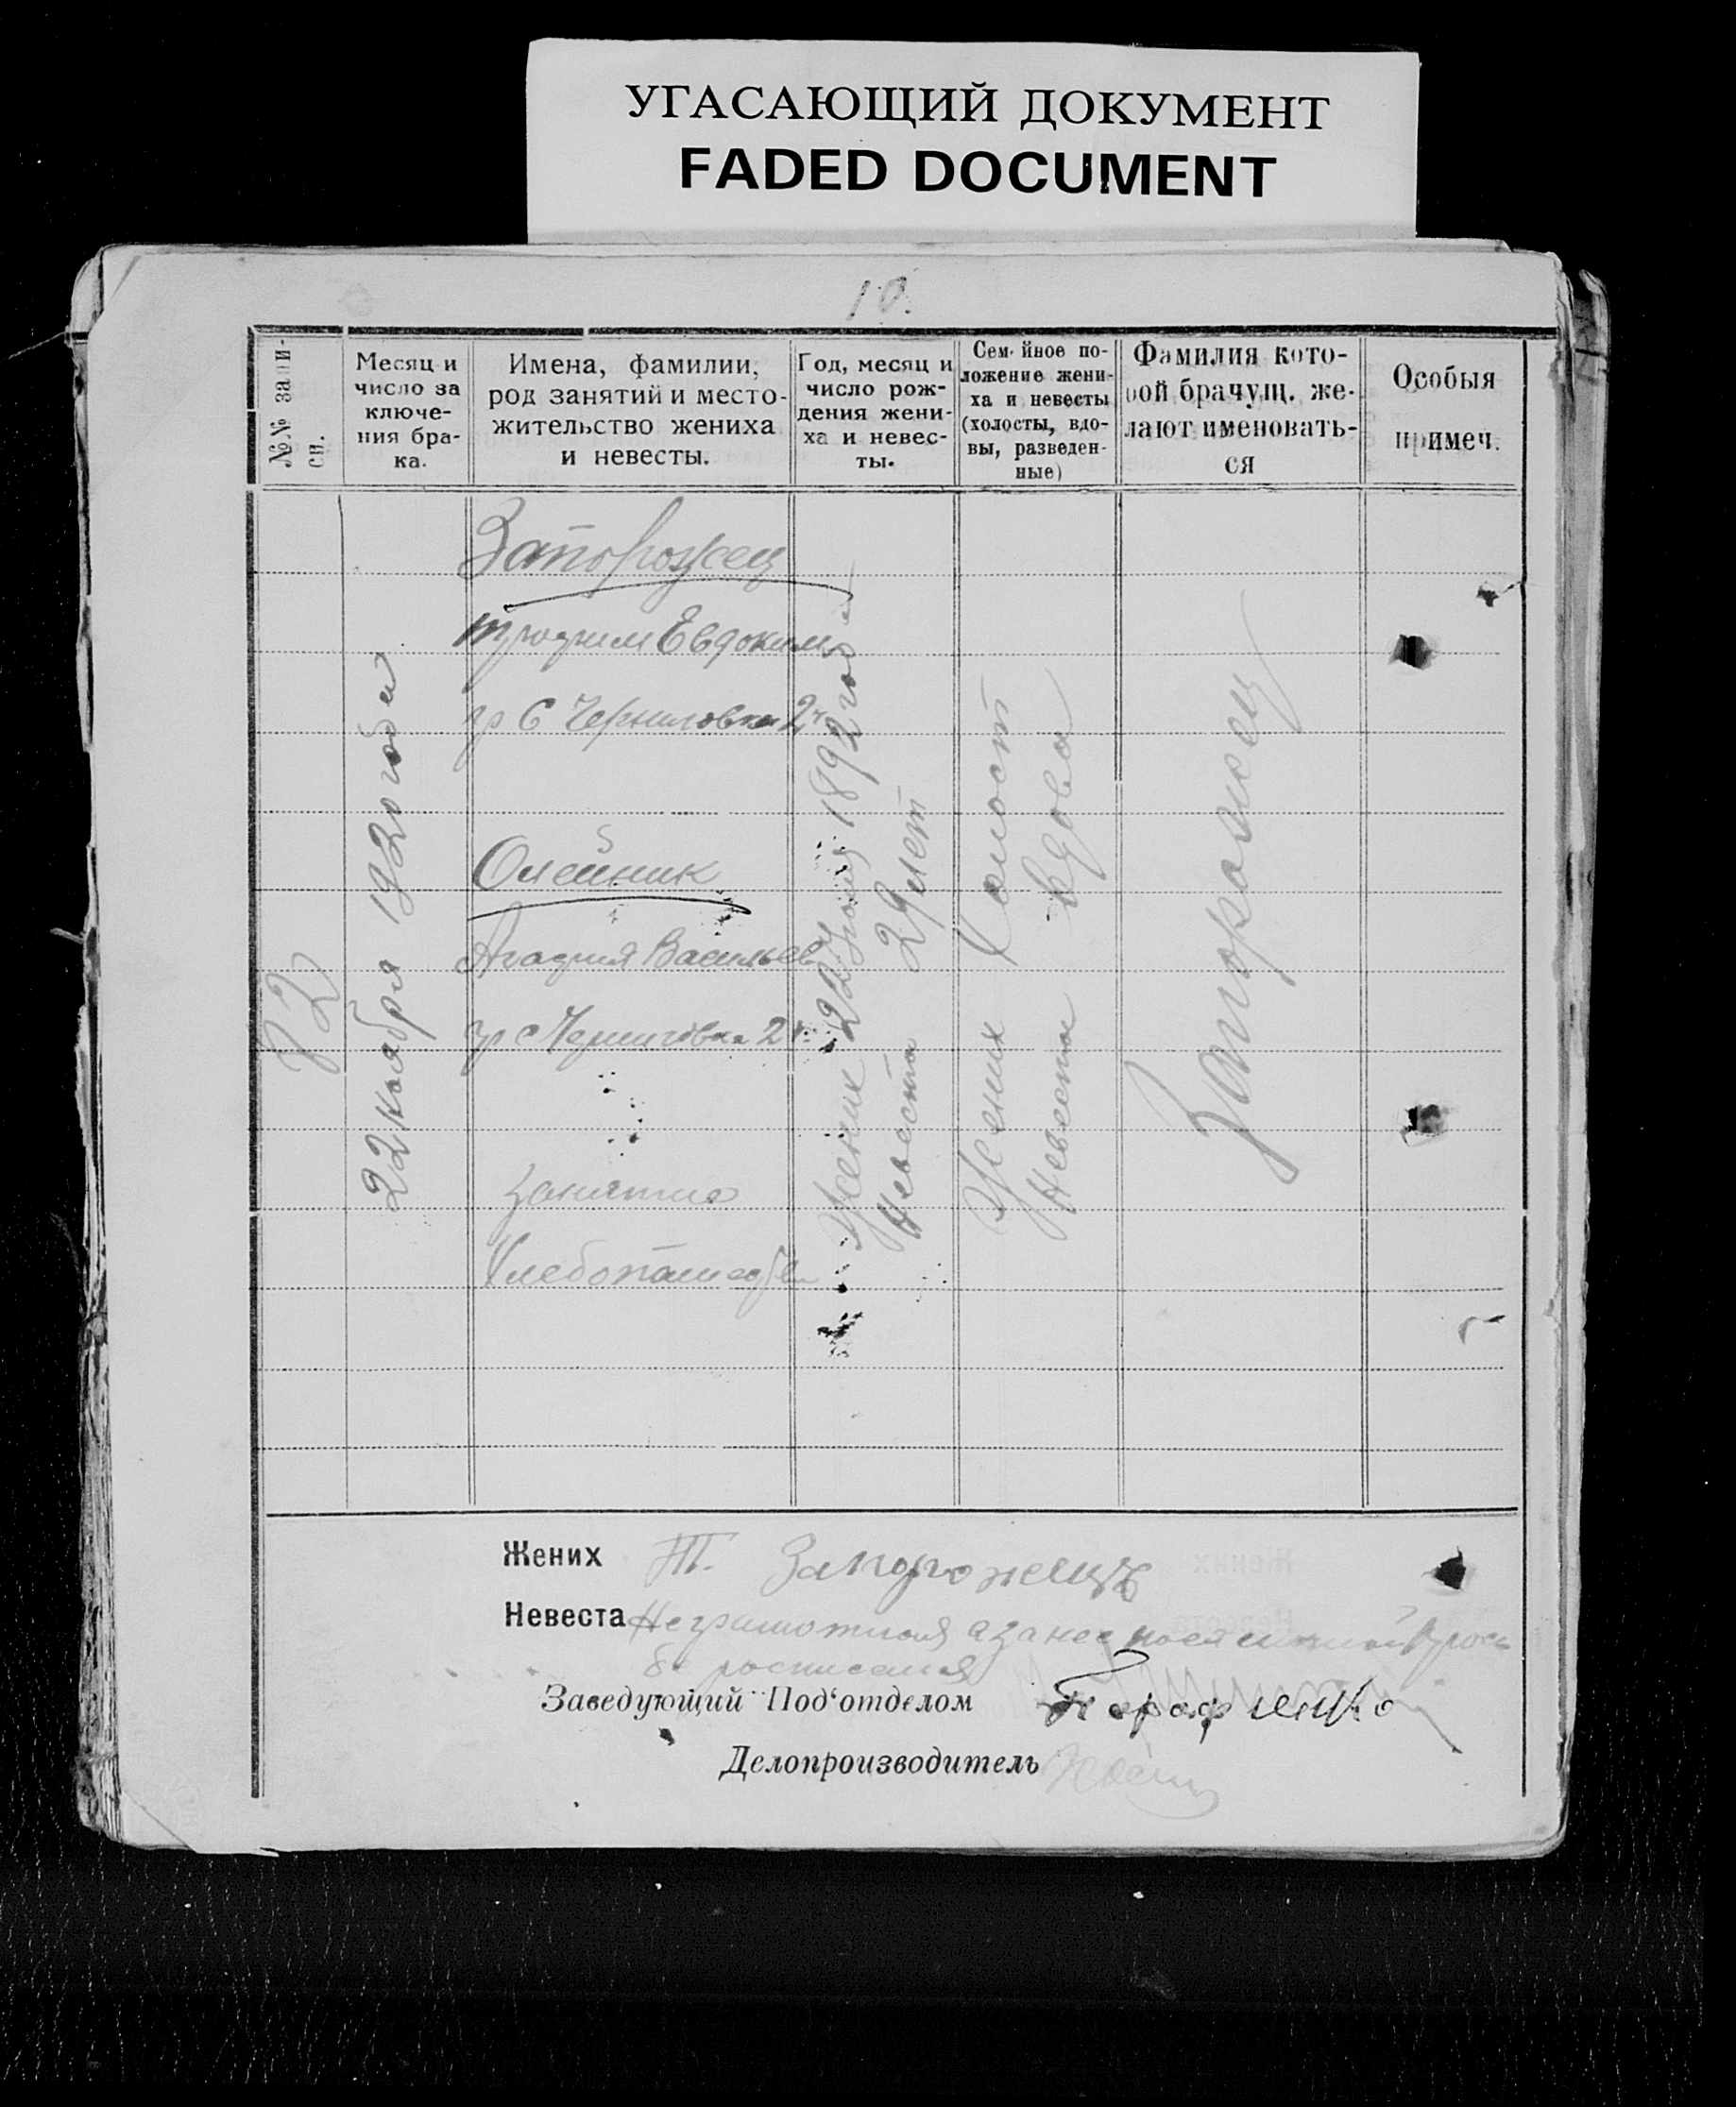 УГАСАЮЩИЙ ДОКУМЕНТ
FADED DOCUMENT
10.
№№ запи-
си.
Месяц и
число за
ключе-
ния бра-
ка.
Имена, фамилии,
род занятий и место-
жительство жениха
и невесты.
Год, месяц и
число рож-
дения жени-
ха и невес-
ты.
Семейное по-
ложение жени-
ха и невесты
(холосты, вдо-
вы, разведен-
ные)
Фамилия кото-
рой брачущ. же-
лают именовать-
ся
Особыя
примеч.
82
22 ноября 1920 года
Запорожец
Трофим Евдоким
гр с Черниговка 2
Олейник
Агафия Васильев
гр с Черниговка 2
занятие
Хлебопашество
Жених 22 Июля 1892 года
Невеста 29 лет
Жених Холост
Невеста вдова
Запорожец
Жених Т. Запорожецъ
Невеста Неграмотная а за нее
росписался
Заведующий Под'отделом
Делопроизводитель